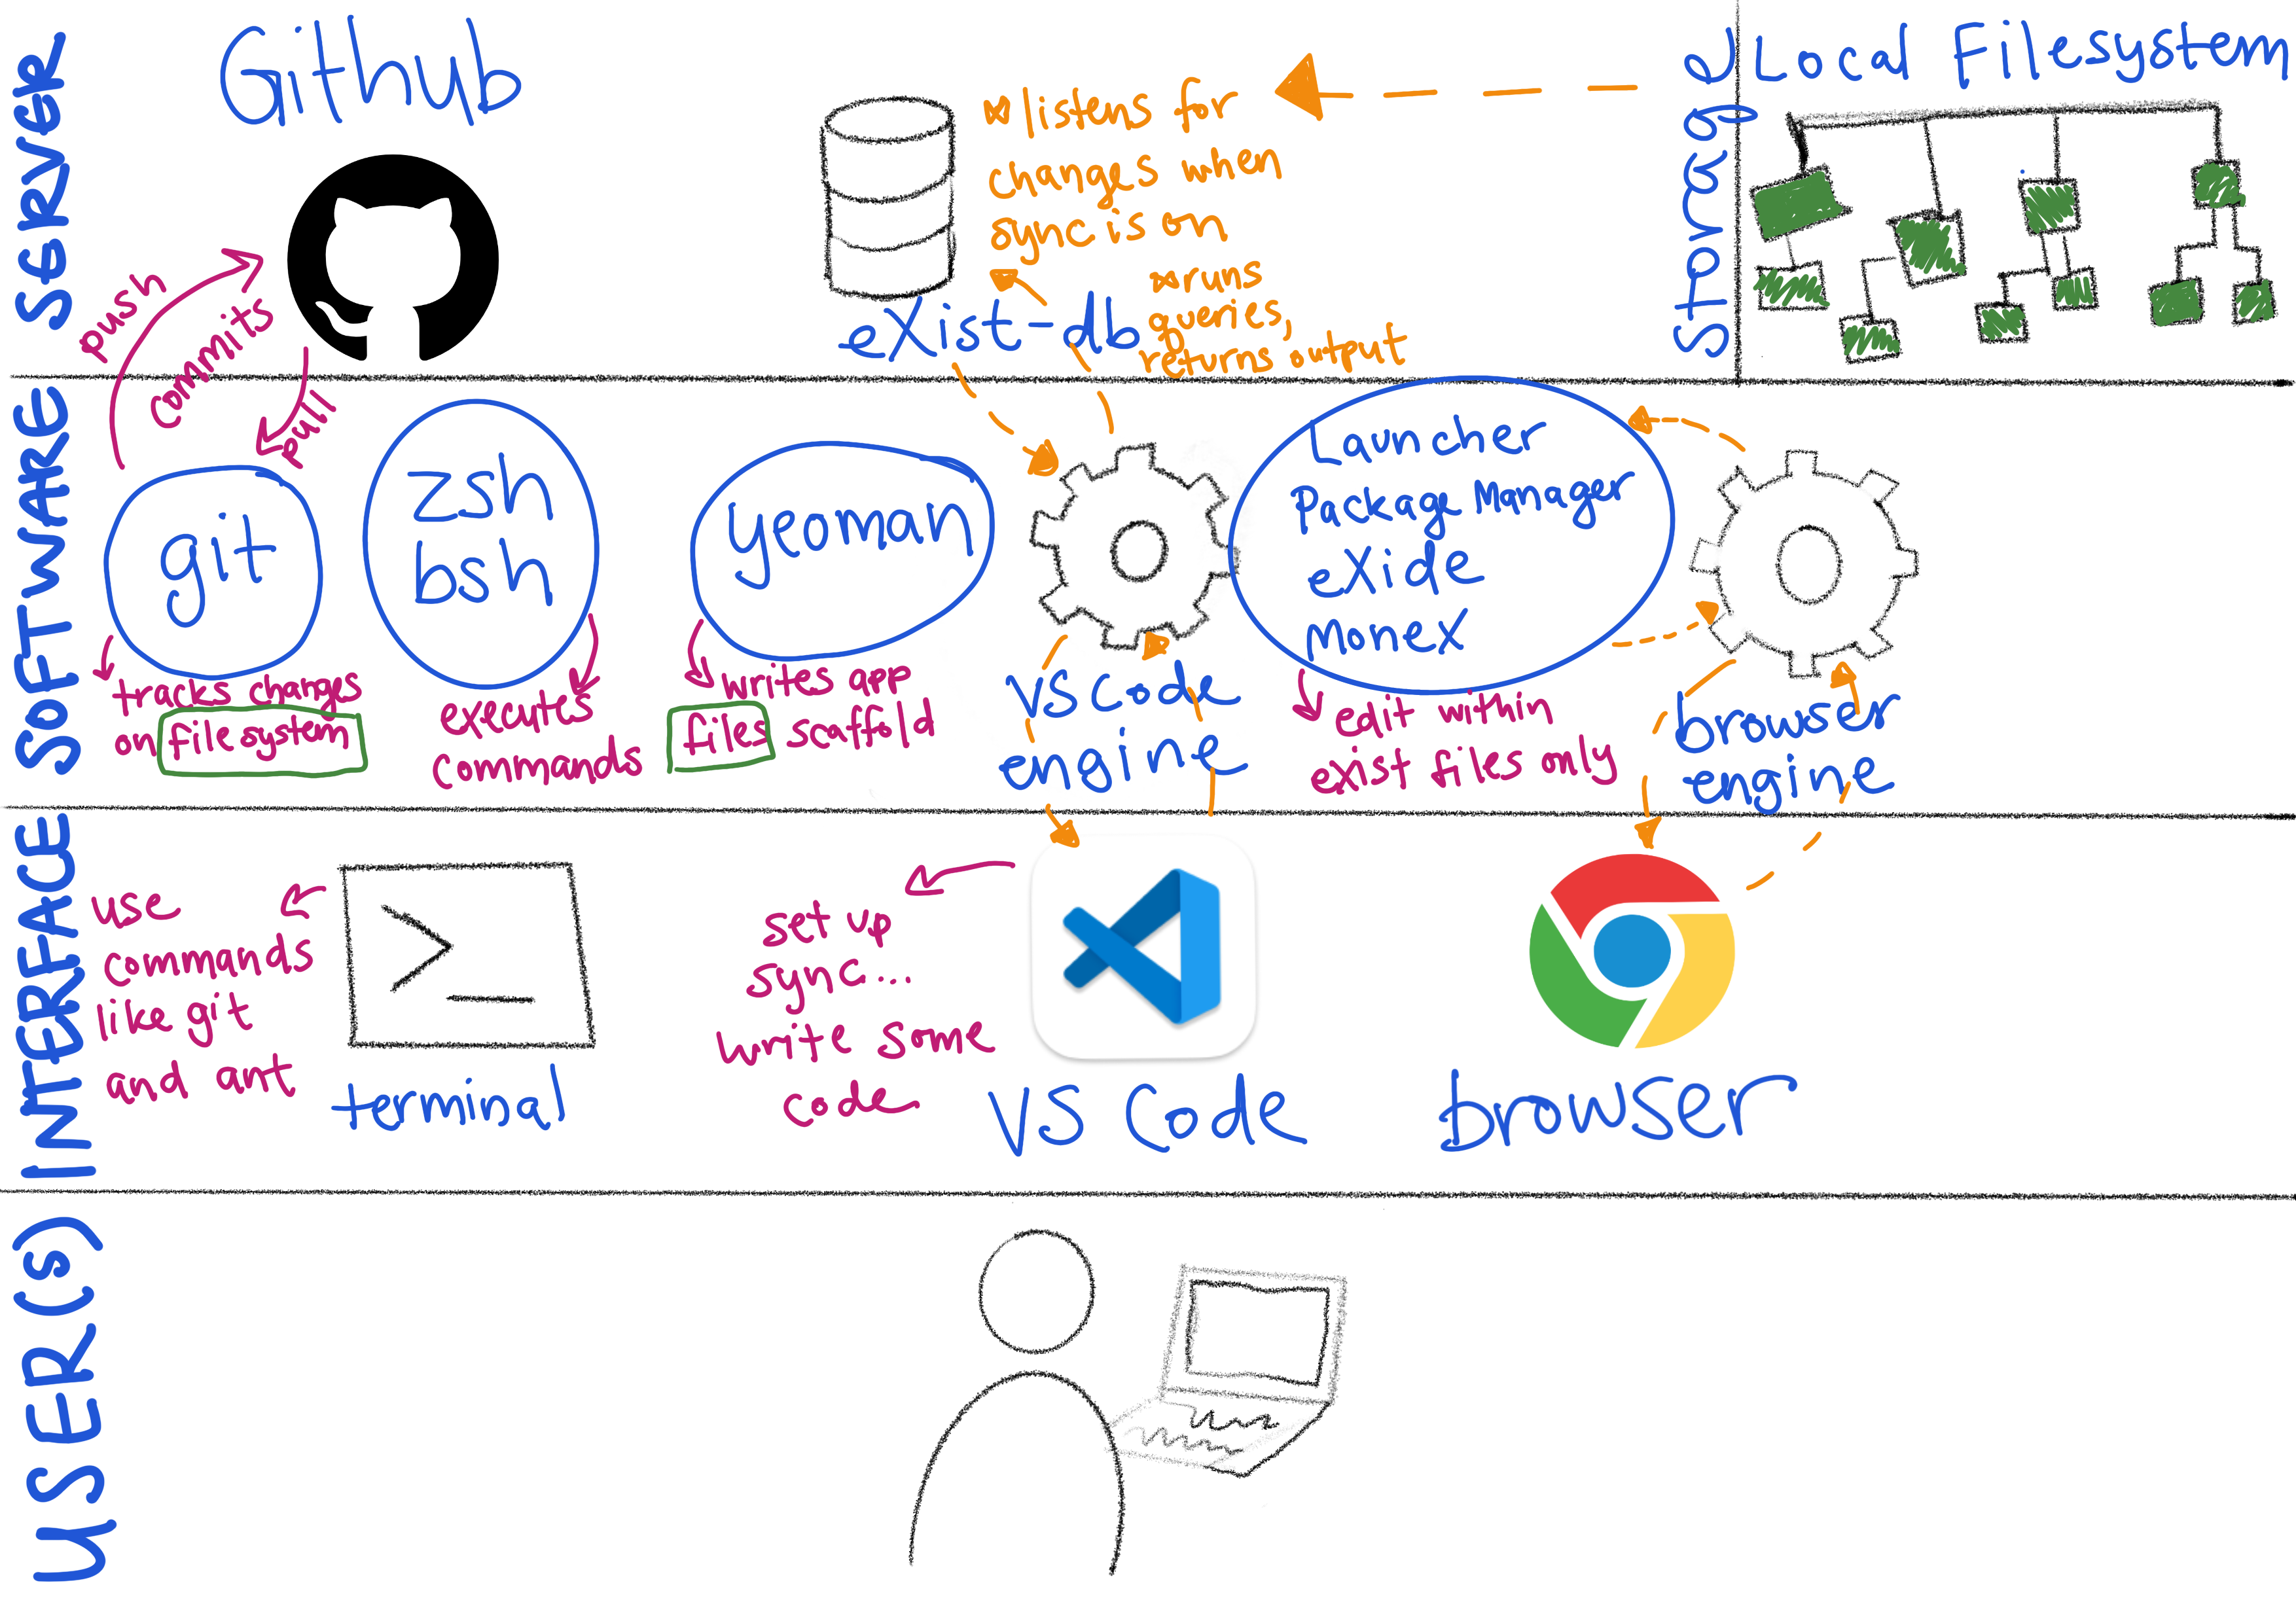 SERVER
Github
push
commits
pull
eXist-db
listens for
changes when
sync is on
runs
queries,
returns output
Storage
Local Filesystem
SOFTWARE
git
tracks changes
on file system
zsh
bsh
executes
commands
yeoman
writes app
files scaffold
VS Code
engine
Launcher
Package Manager
eXide
Monex
edit within
exist files only
browser
engine
INTERFACE
use
commands
like git
and ant
>_
terminal
set up
sync...
write some
code
VS Code
browser
USER(s)